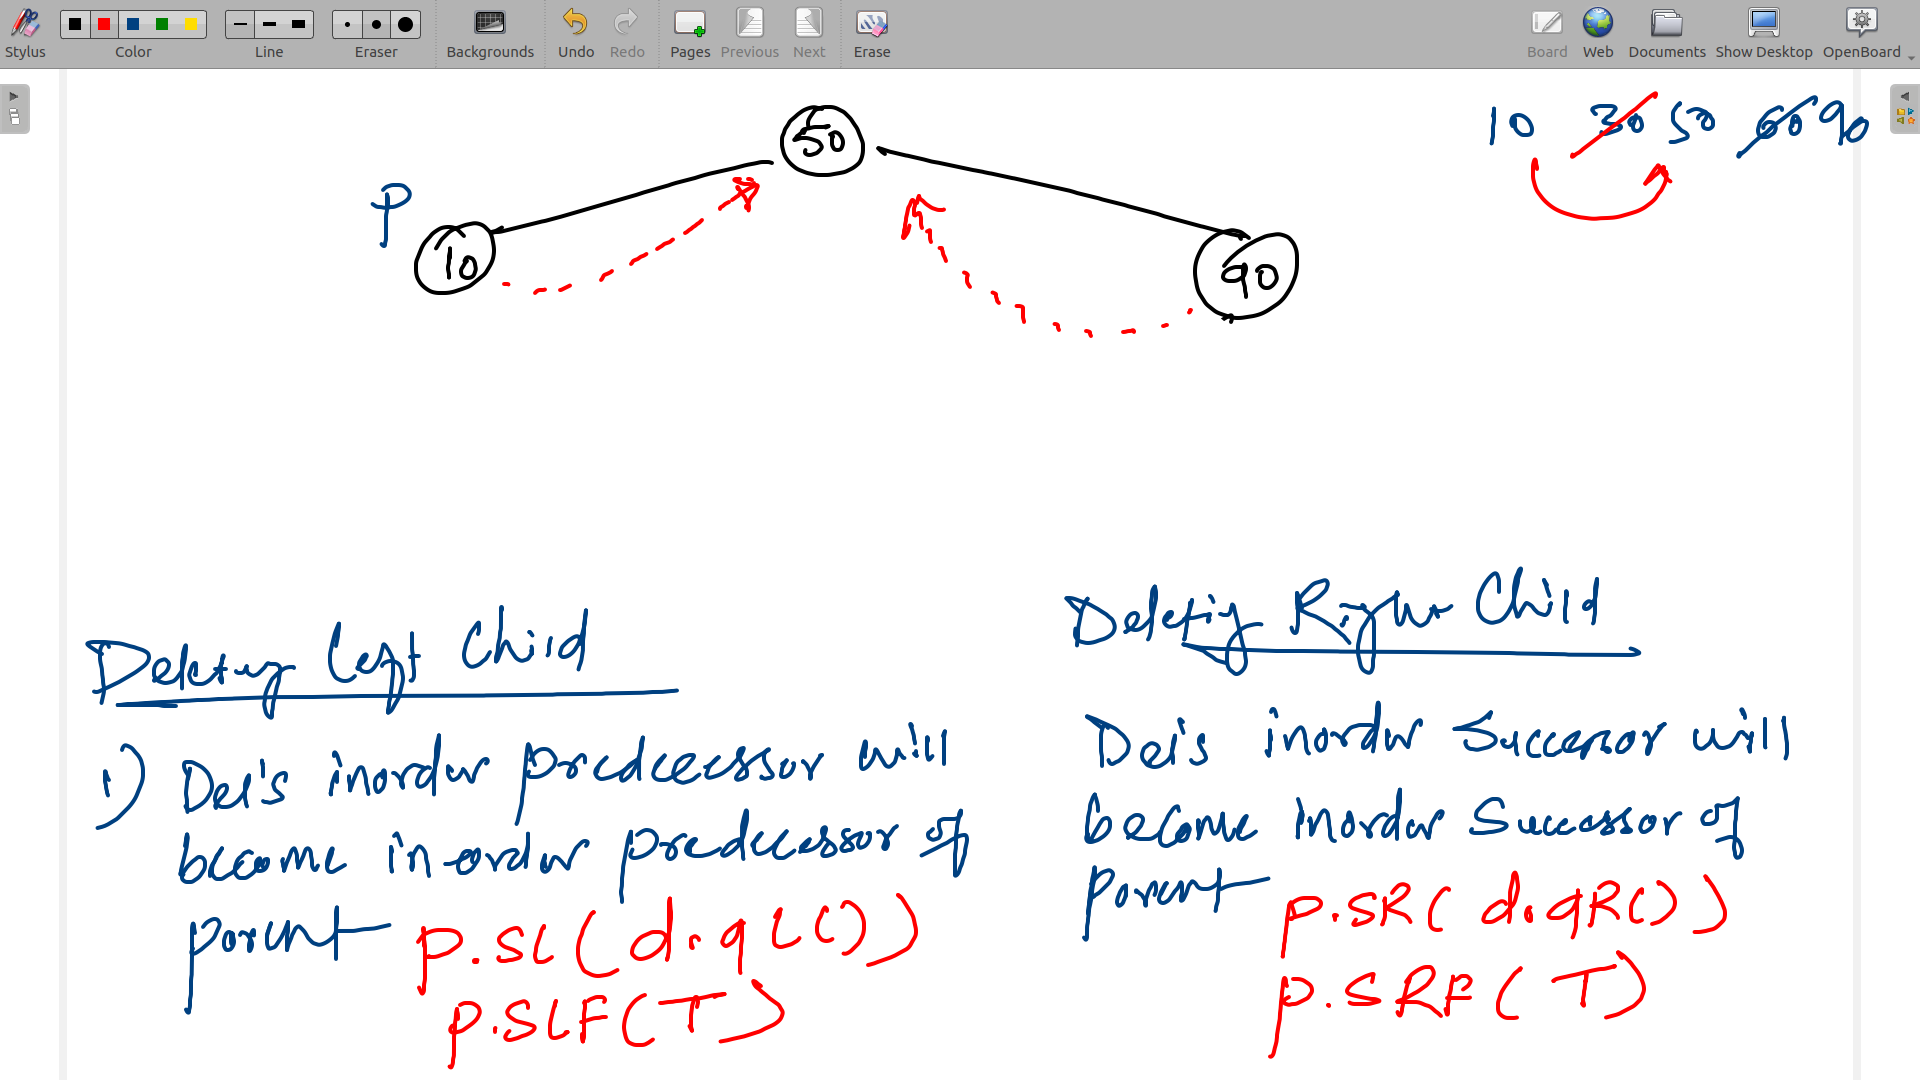 Stylus Color Line Eraser Backgrounds Undo Redo Pages Previous Next Erase Board Web Documents Show Desktop OpenBoard
50
10 30 50 60 90
P
10
90
Deleting Left Child
1) Del's inorder predecessor will
become inorder predecessor of
parent p.SL(d.gL())
p.SLF(T)
Deleting Right Child
Del's inorder Successor will
become inorder Successor of
parent p.SR(d.gR())
p.SRF(T)